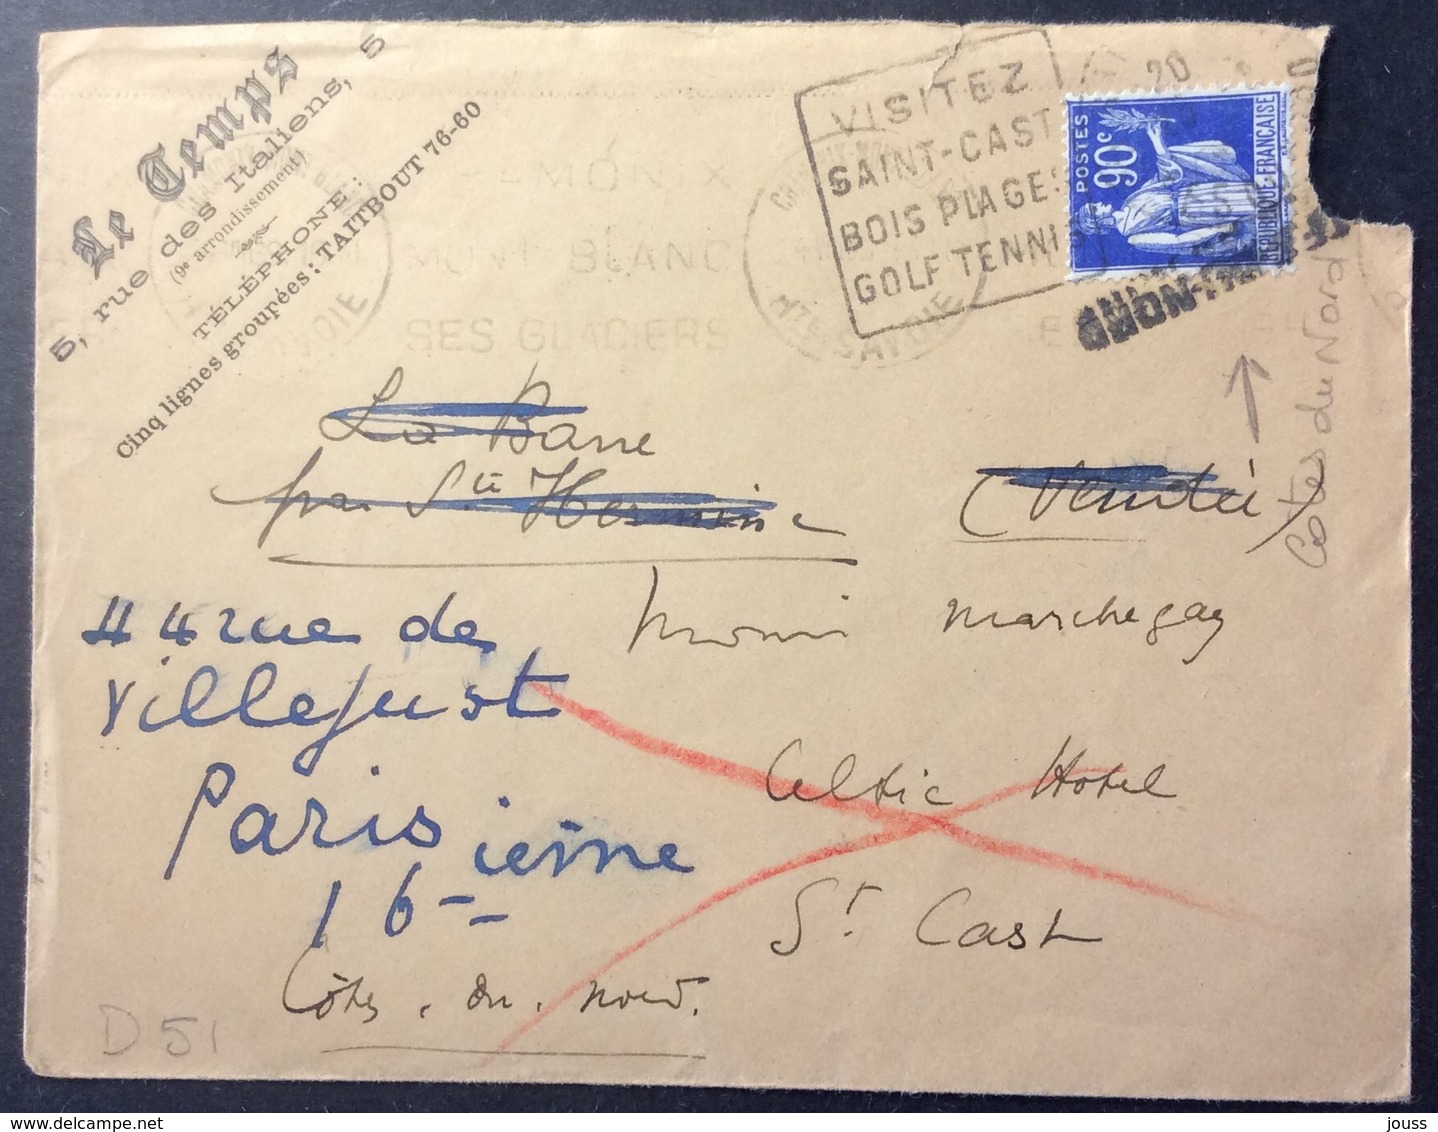 Le Temps
5, rue des Italiens, 5
(9e arrondissement)
TÉLÉPHONE:
Cinq lignes groupées: TAITBOUT 76-60
VISITEZ
SAINT-CAST
BOIS PLAGES
GOLF TENNIS
POSTES
90c
REPUBLIQUE FRANÇAISE
MONT BLANC
SES GLACIERS
HTE SAVOIE
Côtes du Nord
La Barre
par Ste Hermine (Vendée)
44 rue de
Villejust
Paris
16 ième
Marchegay
Celtic Hotel
St. Cast
Côtes. du. nord.
D 51
delcampe.net
jouss